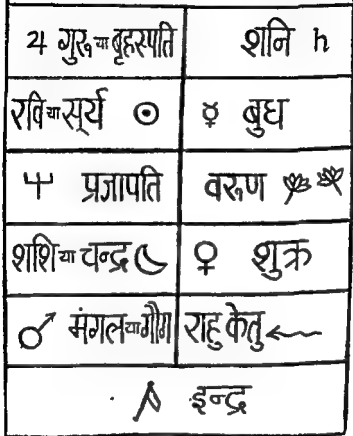 ♃ गुरू या बृहस्पति शनि h
रवि या सूर्य ☉ ☿ बुध
प्रजापति वरुण
शशि या चन्द्र ☾ ♀ शुक्र
♂ मंगल या गौग राहु केतु
इन्द्र